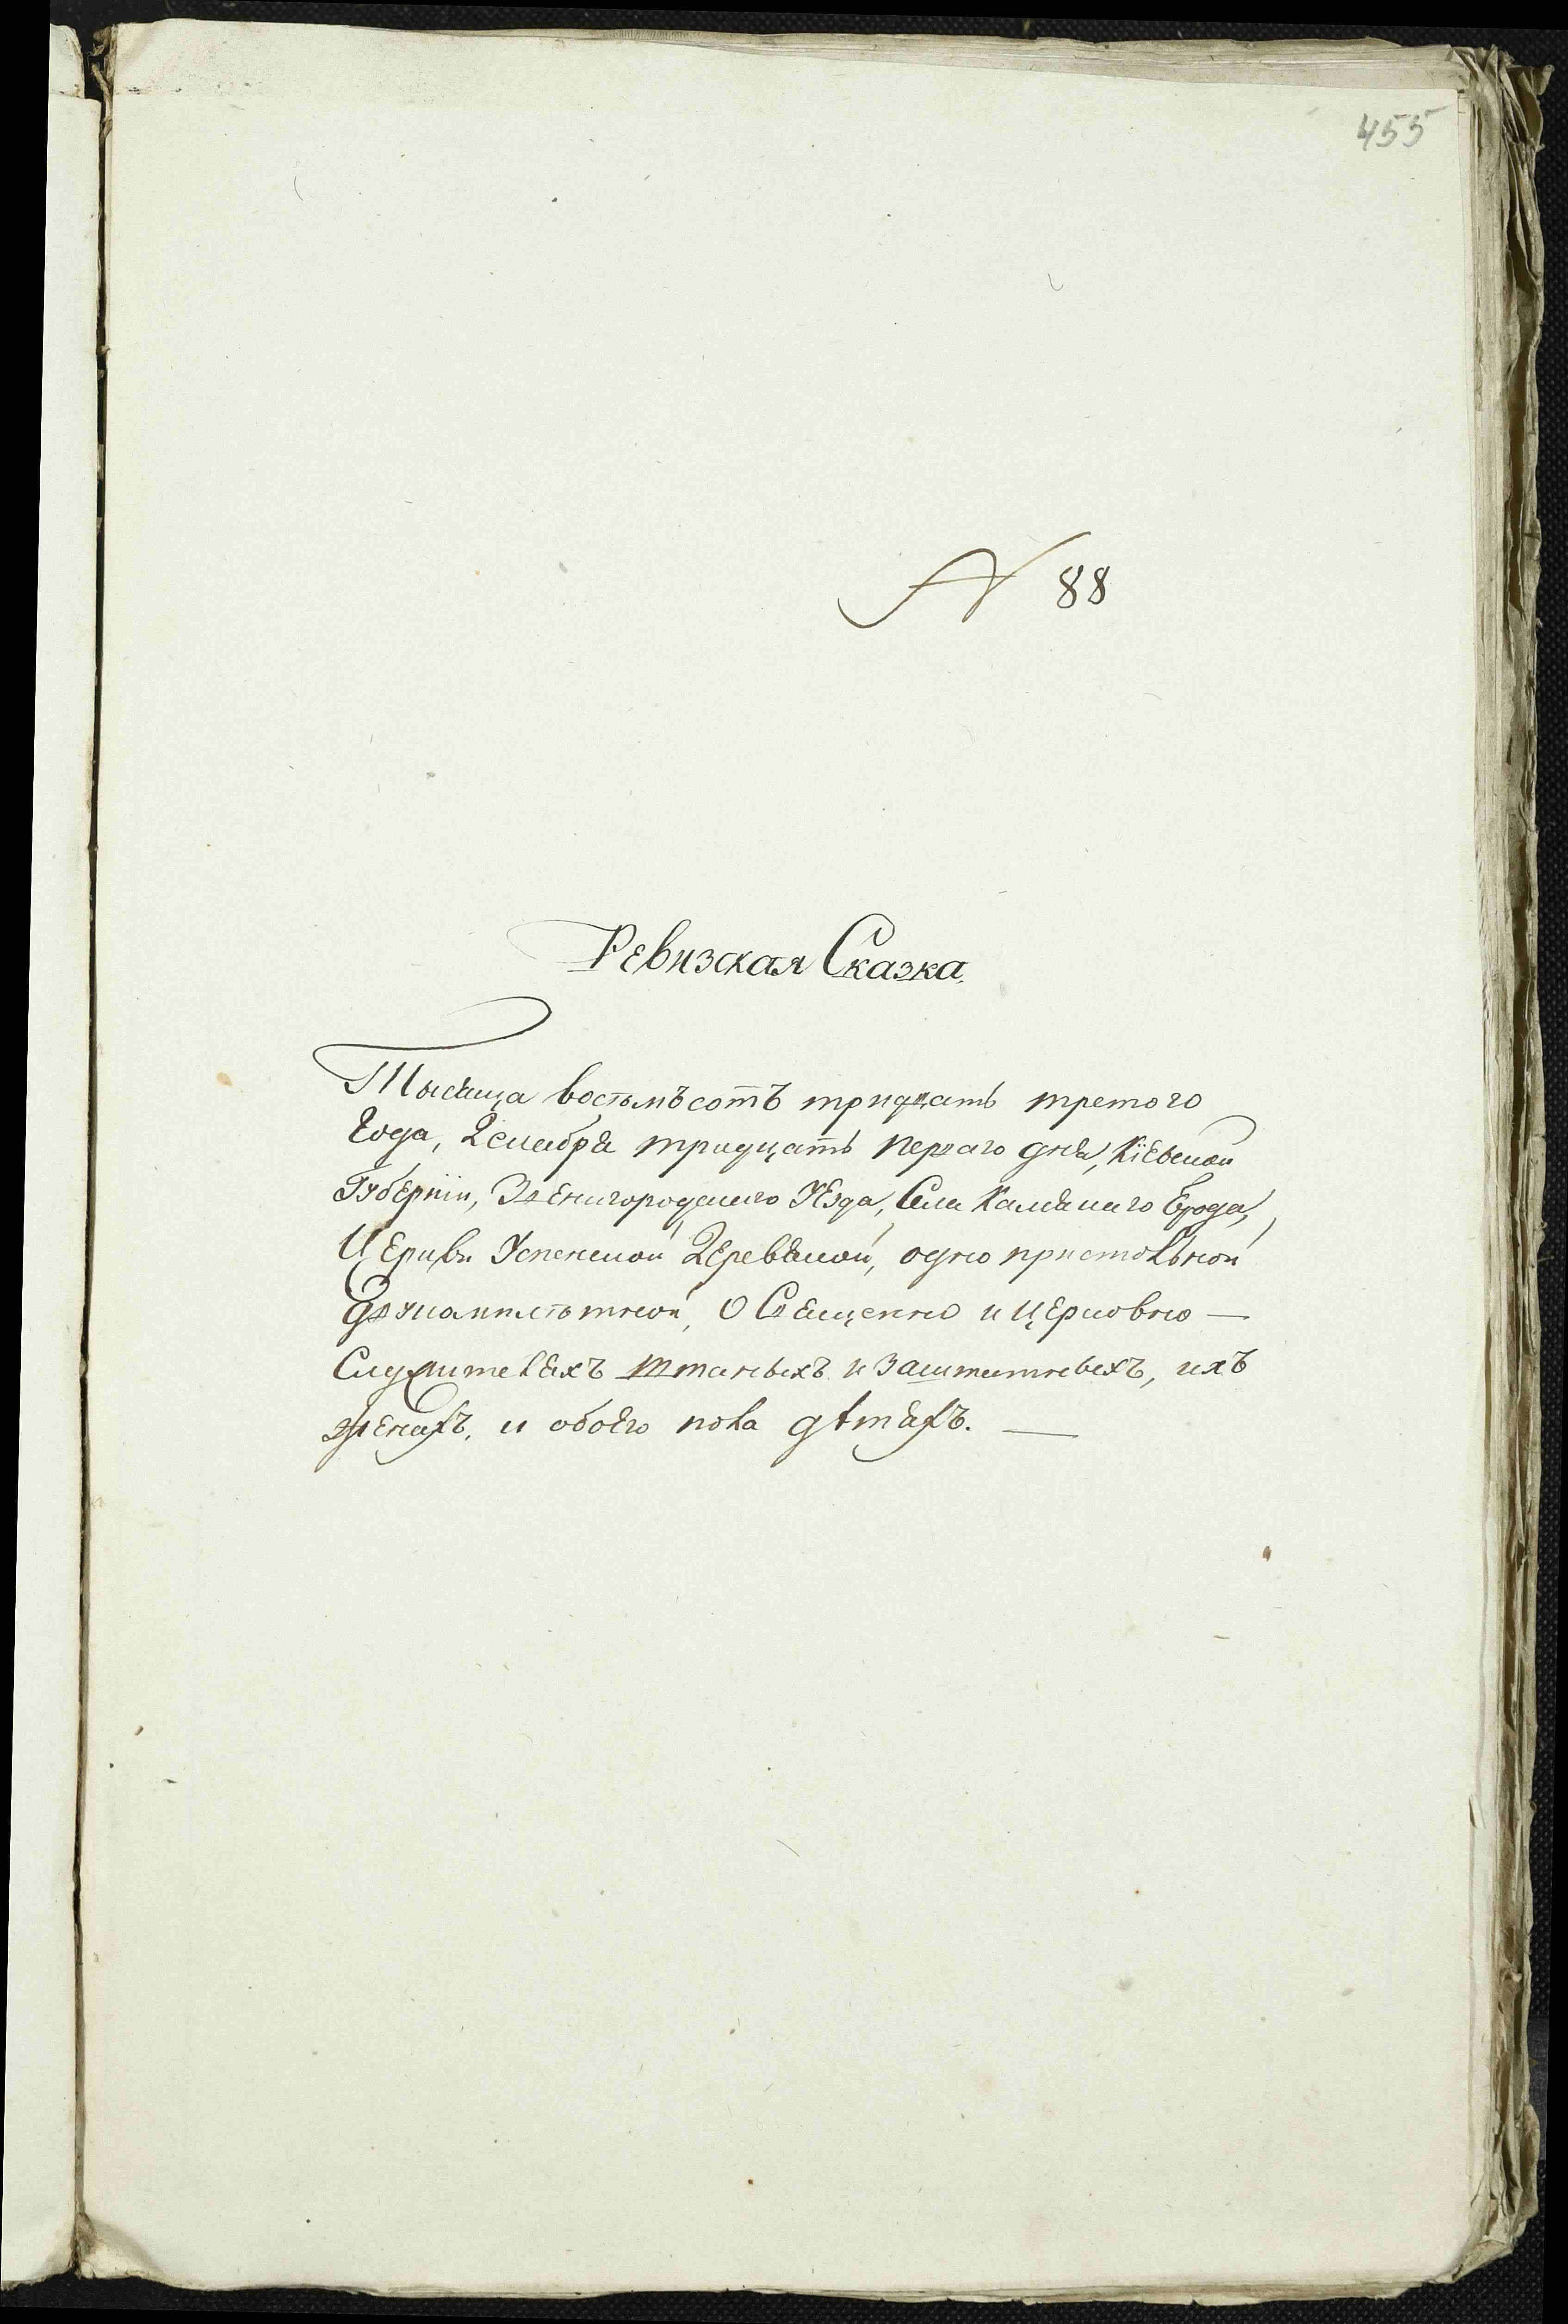 455
№ 88
Ревизская Сказка
Тысяща востьмъсотъ тридцать третого
Года, Декабря тридцать первого дня, Кіевской
Губерніи, Звенигородского Уезда, Села Каменаго Брода,
Церкви Успенской Деревяной, одно пристольной
О Священно и Церковно —
Служителяхъ штатныхъ и заштатныхъ, ихъ
женахъ, и обоего пола дѣтяхъ. —